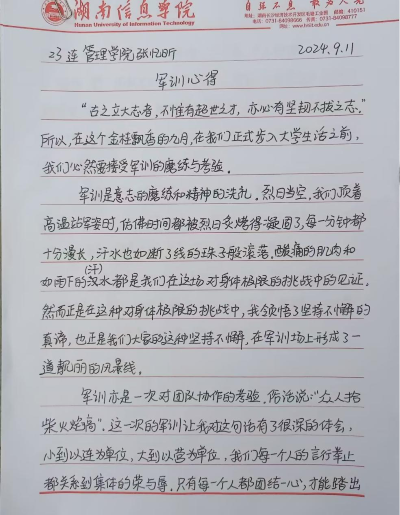 湖南信息学院
Hunan University of Information Technology
自强不息 敢为人先
23连 管理学院 张忆昕 2024.9.11
军训心得
“古之立大志者,不惟有超世之才,亦必有坚韧不拔之志。”
所以,在这个金桂飘香的九月,在我们正式步入大学生活之前,
我们必然需接受军训的磨练与考验。
军训是意志的磨练和精神的洗礼。烈日当空,我们顶着
高温站军姿时,仿佛时间都被烈日炙烤得凝固了,每一分钟都
十分漫长,汗水也如断了线的珠子般滚落,酸痛的肌肉和
(汗)
如雨下的汉水都是我们在这场对身体极限的挑战中的见证。
然而正是在这种对身体极限的挑战中,我领悟了坚持不懈的
真谛,也正是我们大家的这种坚持不懈,在军训场上形成了一
道靓丽的风景线。
军训亦是一次对团队协作的考验。俗话说:“众人拾
柴火焰高”。这一次的军训让我对这句话有了很深的体会,
小到以连为单位,大到以营为单位,我们每一个人的言行举止
都关系到集体的荣与辱。只有每个人都团结一心,才能踏出